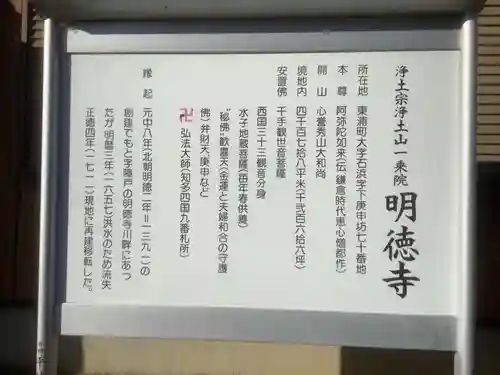 浄土宗浄土山一乗院
明徳寺
所在地　東浦町大字石浜字下庚申坊七十番地
本尊　阿弥陀如来(伝 鎌倉時代恵心僧都作)
開山　心誉秀山大和尚
境地内　四千百七拾八平米(千弐百六拾六坪)
安置佛　千手観世音菩薩
西国三十三観音分身
水子地蔵菩薩(毎年春供養)
"秘佛"歓喜天(金運と夫婦和合の守護
佛)弁財天 庚申など
卍 弘法大師(知多四国九番札所)
縁起　元中八年(北朝明徳二年＝一三九一)の
創建でもと字障戸の明徳寺川畔にあっ
たが 明暦三年(一六五七)洪水のため流失
正徳四年(一七一二)現地に再建移転した。